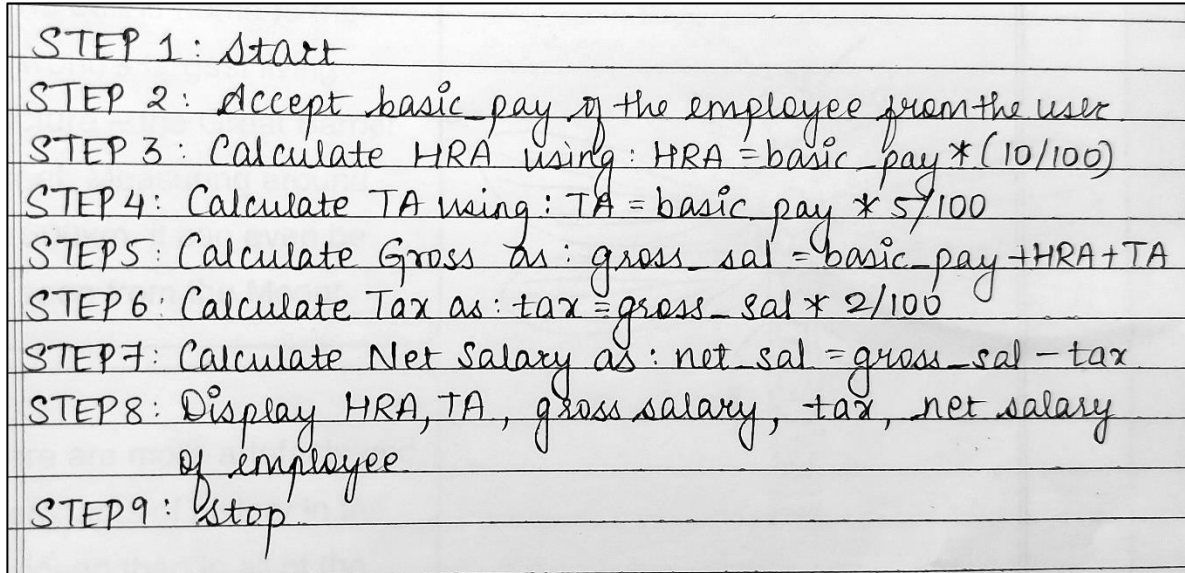 STEP 1: Start
STEP 2: Accept basic_pay of the employee from the user
STEP 3: Calculate HRA using: HRA = basic_pay * (10/100)
STEP 4: Calculate TA using: TA = basic_pay * 5/100
STEP 5: Calculate Gross as: gross_sal = basic_pay + HRA + TA
STEP 6: Calculate Tax as: tax = gross_sal * 2/100
STEP 7: Calculate Net Salary as: net_sal = gross_sal - tax
STEP 8: Display HRA, TA, gross salary, tax, net salary
of employee
STEP 9: Stop